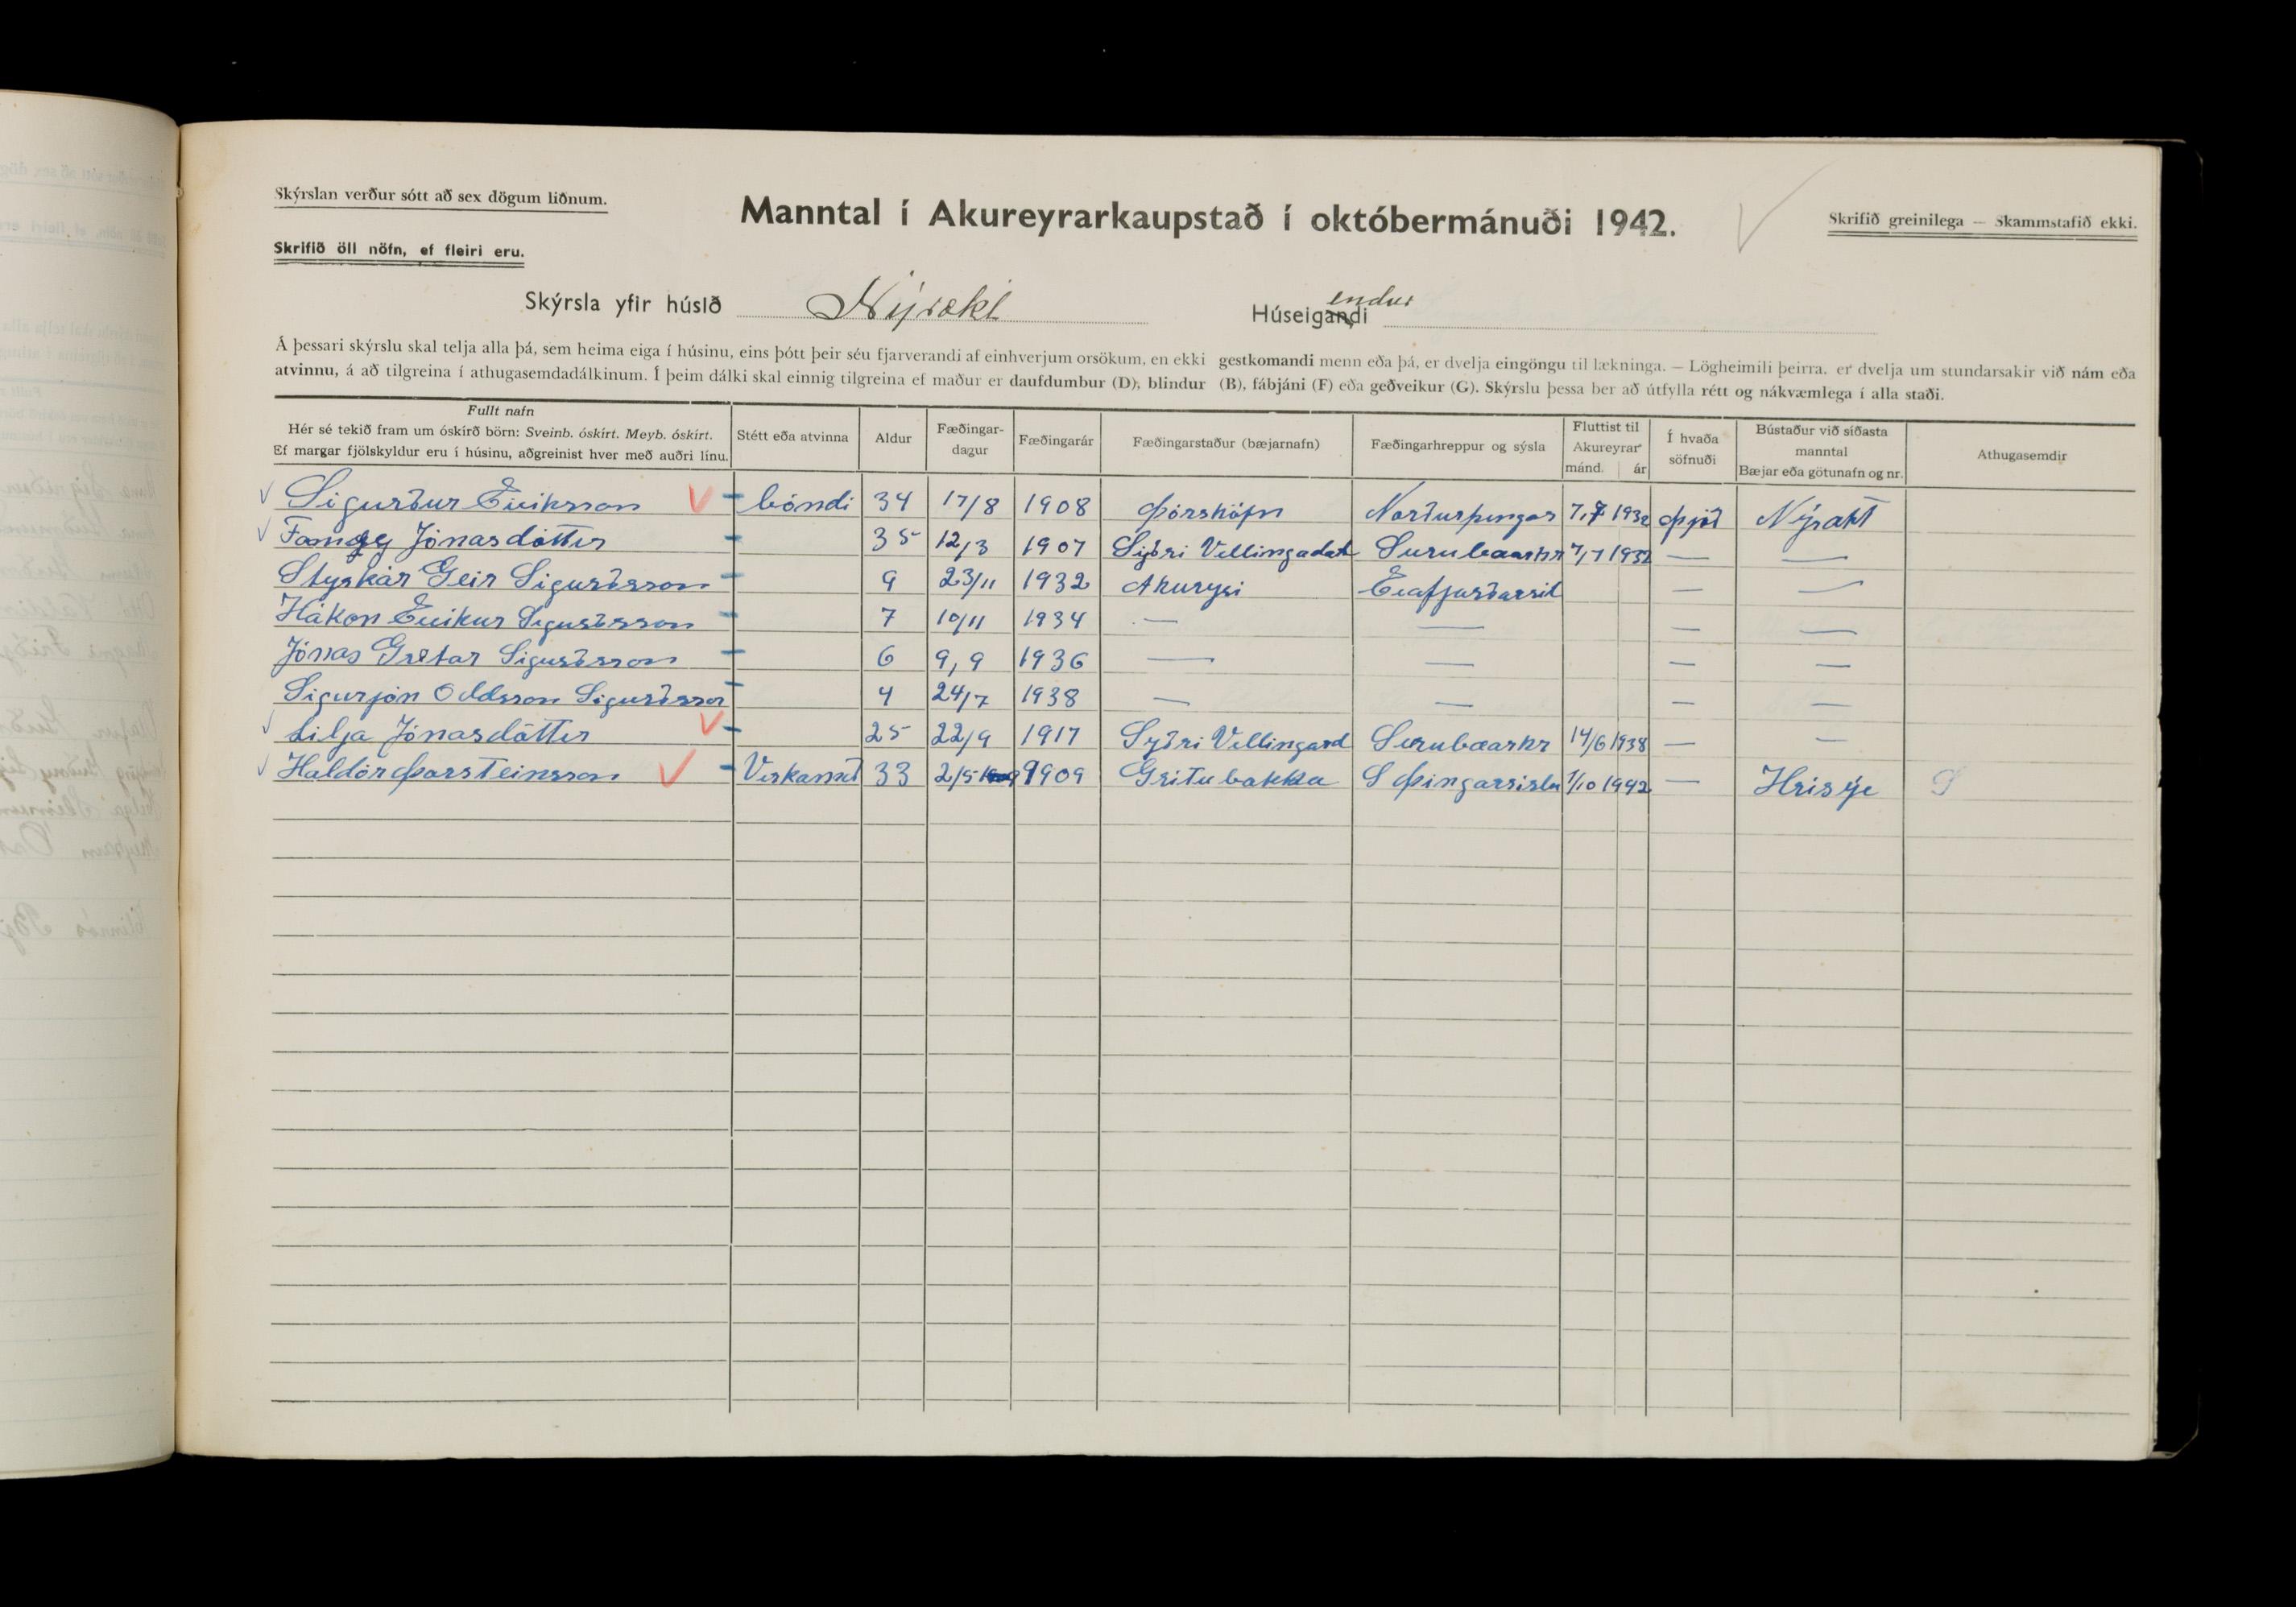 Skýrslan verður sótt að sex dögum liðnum.
Manntal í Akureyrarkaupstað í októbermánuði 1942.
Skrifið greinilega — Skammstafið ekki.
Skrifið öll nöfn, ef fleiri eru.
Skýrsla yfir húsið Nýrækt Húseigandi endur
Á þessari skýrslu skal telja alla þá, sem heima eiga í húsinu, eins þótt þeir séu fjarverandi af einhverjum orsökum, en ekki gestkomandi menn eða þá, er dvelja eingöngu til lækninga. — Lögheimili þeirra, er dvelja um stundarsakir við nám eða
atvinnu, á að tilgreina í athugasemdadálkinum. Í þeim dálki skal einnig tilgreina ef maður er daufdumbur (D), blindur (B), fábjáni (F) eða geðveikur (G). Skýrslu þessa ber að útfylla rétt og nákvæmlega í alla staði.
Fullt nafn
Hér sé tekið fram um óskírð börn: Sveinb. óskírt. Meyb. óskírt.
Ef margar fjölskyldur eru í húsinu, aðgreinist hver með auðri línu.
Stétt eða atvinna
Aldur
Fæðingar-
dagur
Fæðingarár
Fæðingarstaður (bæjarnafn)
Fæðingarhreppur og sýsla
Fluttist til
Akureyrar
mánd. ár
Í hvaða
söfnuði
Bústaður við síðasta
manntal
Bæjar eða götunafn og nr.
Athugasemdir
Sigurður Eiriksson bóndi 34 17/8 1908 Þórshöfn Norðurþingos 7,7 1932 Þjóð Nýrakt
Jónasdóttir 35 12/3 1907 Syðri Vellingadal 7/7 1932 —
Styrkár Geir Sigurðsson 9 23/11 1932 Akuryri — —
Hákon Eirikur Sigurðsson 7 10/11 1934 — — — —
Jónas Gretar Sigurðsson 6 9,9 1936 — — — —
Sigurjón Oddsson Sigurðsson 4 24/7 1938 — — — —
Lilja Jónasdóttir 25 22/9 1917 Syðri Vellingard Surubæarhr 14/6 1938 — —
Haldór Þorsteinsson Verkamð 33 2/5 1909 Gritubakka S Þingarsisla 1/10 1942 — Hrisye S